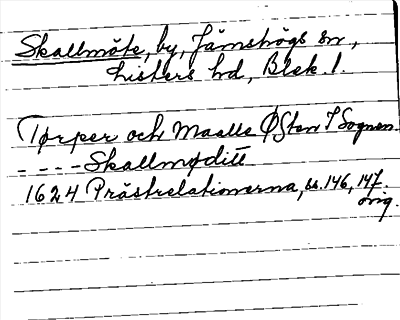 Skallmöte, by, Jämshögs sn,
Listers hd, Blek. l.
Tørper och Maalle Østen I Sognen.
- - - - Skallmøditt
1624 Prästrelationerna, ss. 146, 147.
orig.